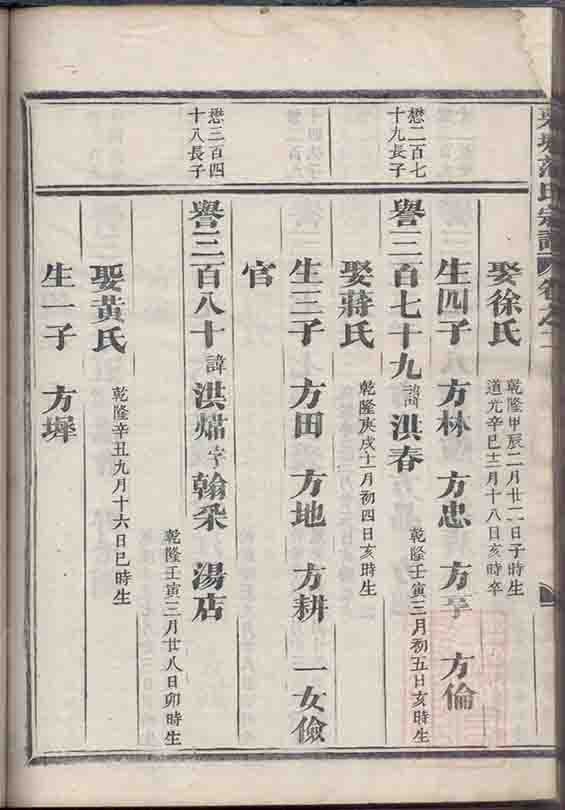 氏宗譜 卷之二
娶徐氏 乾隆甲辰二月廿二日子時生
道光辛巳十二月十八日亥時卒
生四子 方林 方忠 方亨 方倫
懋二百七
十九長子
譽三百七十九 諱洪春 乾隆壬寅三月初五日亥時生
娶蔣氏 乾隆庚戌十一月初四日亥時生
生三子 方田 方地 方耕 一女儉
官
懋三百四
十八長子
譽三百八十 諱洪 字翰采 湯店 乾隆壬寅三月廿八日卯時生
娶黃氏 乾隆辛丑九月十六日巳時生
生一子 方墀